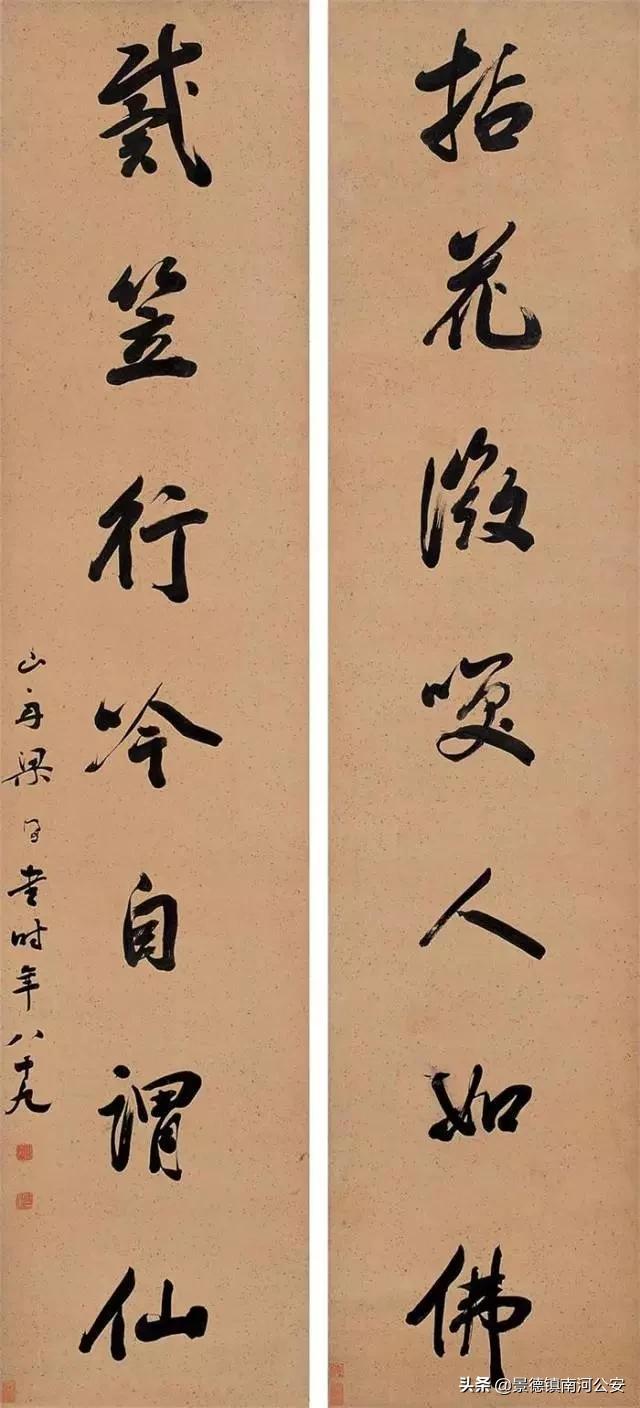 拈花微笑人如佛
戴笠行吟自謂仙
山舟梁同書時年八十九
头条 @景德镇南河公安